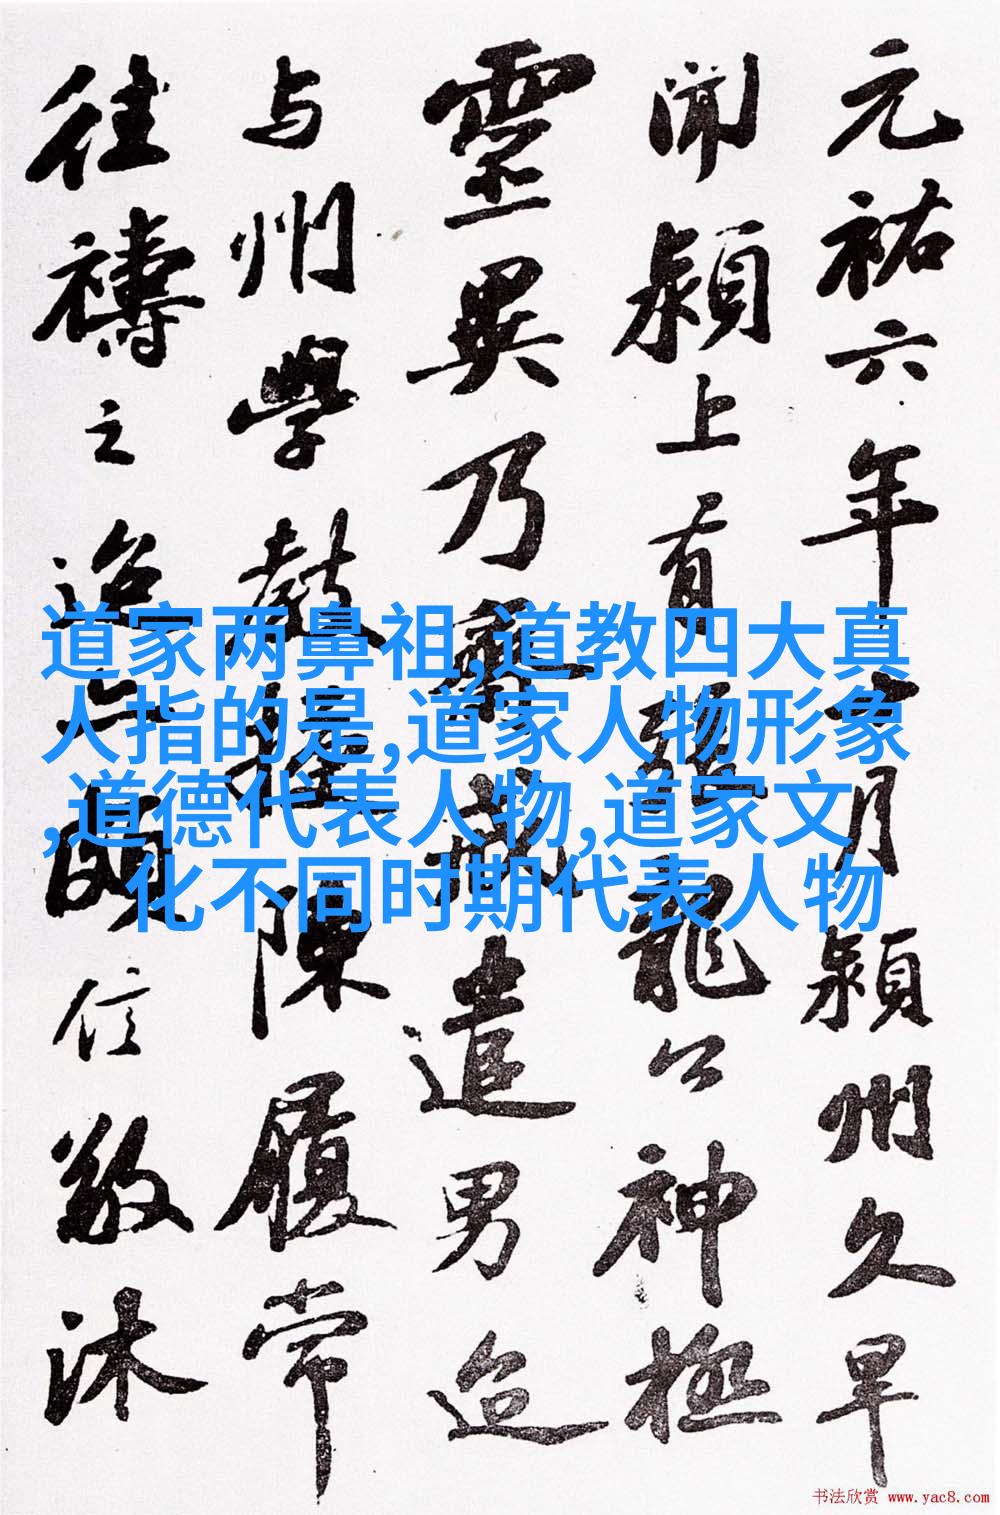 元祐六年十月潁州久旱
聞潁上有張龍公神極
靈異乃齋戒遣男迨
与州學教授陳履常
往禱之迨亦頗信敬沐
道家两鼻祖,道教四大真
人指的是,道家人物形象
,道德代表人物,道家文
化不同时期代表人物
书法欣赏 www.yac8.com